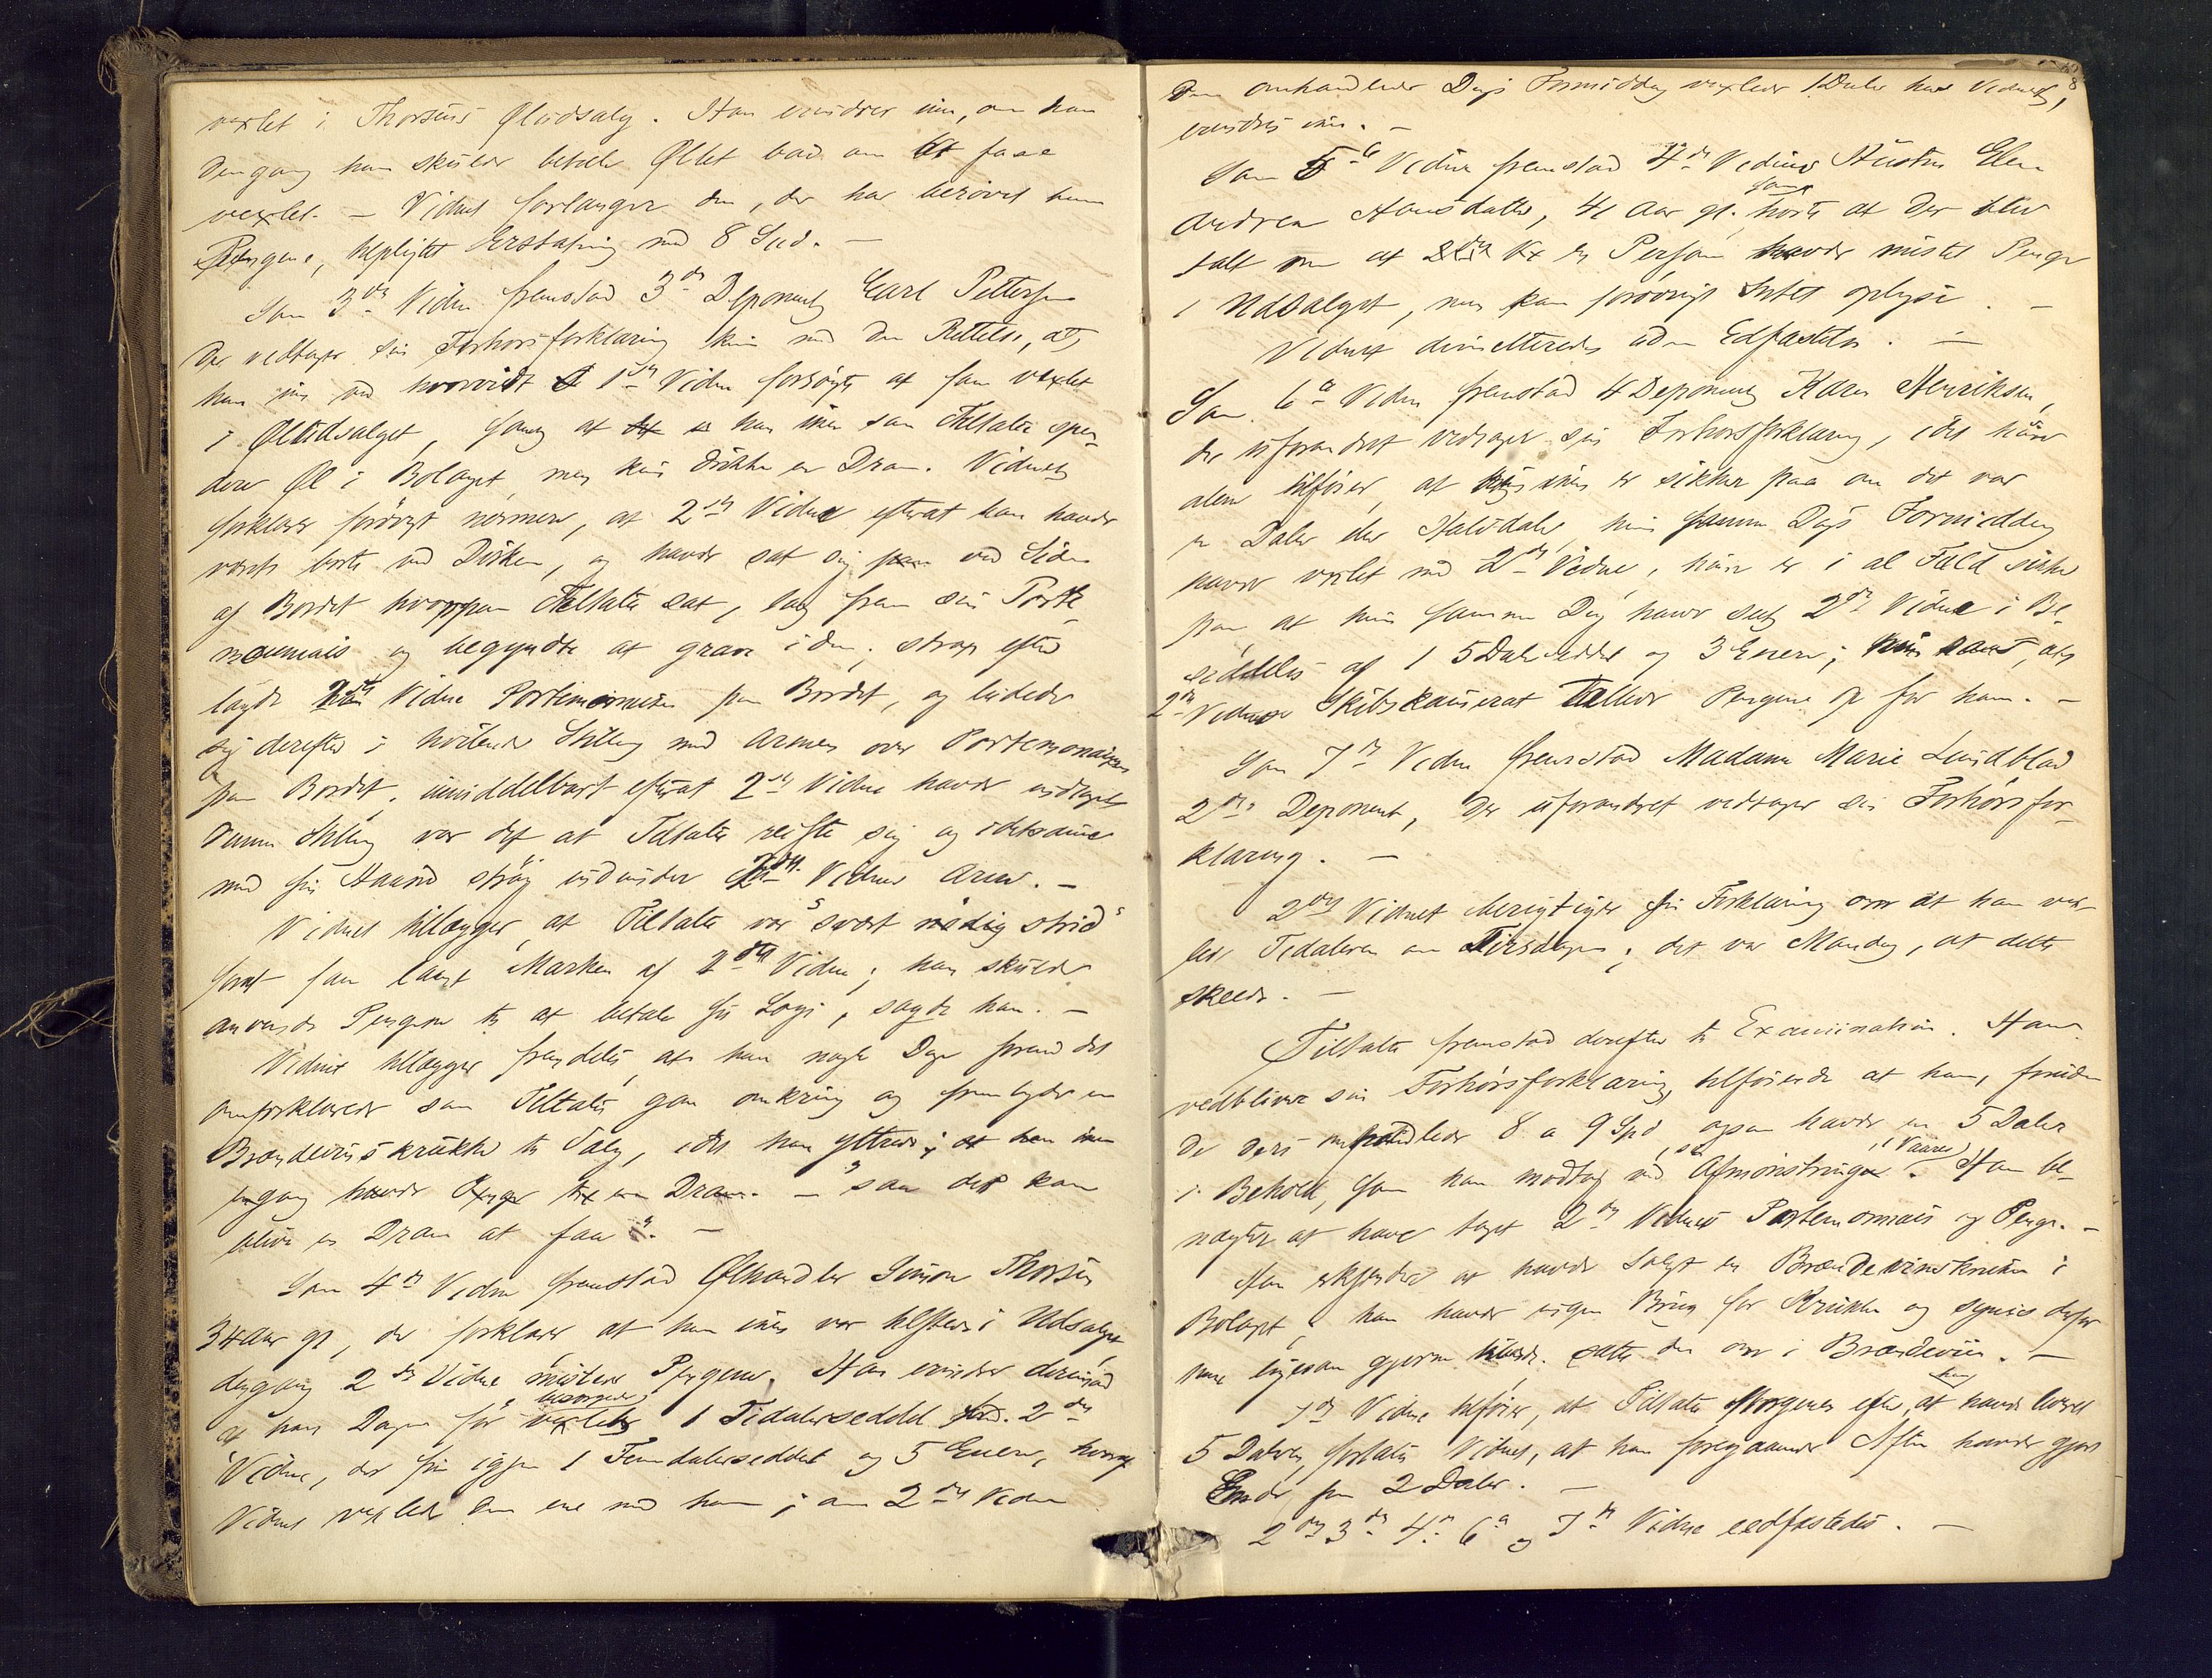 vexlet i Thorsens Øludsalg. Han erindrer ikke, om han
dengang han skulde betale Øllet bad om at faae
vexlet. — Vidnet forlanger den, der har berøvet ham
Pengene, tilpligtet Erstatning med 8 Spd. —
Som 3die Vidne fremstod 3die Deponent Carl Pettersen
der vedtager sin Forhørsforklaring kun med den Rettelse, at
han ikke ved hvorvidt 1ste Vidne forsøgte at faa vexlet
i Øludsalget, samt at han ikke saa Tiltalte spen-
dere Øl i Bolaget, men kun drikke en Dram. Vidnet
forklarer forøvrigt nærmere, at 2det Vidne efterat han havde
været borte ved Disken, og havde sat sig ved Siden
af Bordet hvorpaa Tiltalte sat, tog frem sin Porte-
monnais og begyndte at grave i den; strax efter
lagde 2det Vidne Portemonnaien paa Bordet, og lutede
sig derefter i hvilende Stilling med Armen over Portemonnaien
paa Bordet. umiddelbart efterat 2det Vidne havde indtaget
denne Stilling var det at Tiltalte reiste sig og i det samme
med sin Haand strøg indunder 2det Vidnes Arm. —
Vidnet tillægger, at Tiltalte var "svært nødig strid"
for at faa laant Marken af 2det Vidne; han skulde
anvende Pengene til at betale sit Logi, sagde han. —
Vidnet tillægger fremdeles, at han nogle Dage forend det
omforklarede saa Tiltalte gaa omkring og frembyde en
Brændeviinskrukke til Salg, idet han yttrede; at han
engang havde en Dram. — "saa det kan
blive en Dram at faa". —
Som 4de Vidne fremstod Ølhandler Simon Thorsen
34 Aar gl, der forklarer at han ikke var tilstede i Udsalget
dengang 2det Vidne mistede Pengene. Han erindrer derimod
at han Dagen før besørgede vexlet 1 Tidalerseddel for 2det
Vidne, der fik igjen 1 Femdalerseddel og 5 Enere, hvoraf
Vidnet vexlede den ene med ham; om 2det Vidne
8
den omhandlede Dags Formiddag vexlede 1 Daler hos Vidnet,
erindres ikke. —
Som 5te Vidne fremstod 4de Vidnes Hustru Elen
Andrea Arnsdatter, 41 Aar gl. som hørte at der blev
talt om at en Person havde mistet Penge
i Udsalget, men kan forøvrigt Intet oplyse. —
Vidnet dimitteredes uden Edfæstelse. —
Som 6te Vidne fremstod 4 Deponent Karen Henriksen,
der uforandret vedtager sin Forhørsforklaring, idet hun
alene tilføier, at hun ikke er sikker paa om det var
en Daler eller Halvdaler, hun samme Dags Formiddag
havde vexlet med 2det Vidne, hun er i al Fald sikker
paa at hun samme Dag havde seet 2det Vidne i Be-
siddelse af 1 5Dalerseddel og 3 Enere; hun saae, at
2det Vidnes Skibskamerat talte Pengene op for ham. —
Som 7de Vidne fremstod Madame Marie Lundblad
2den Deponent, der uforandret vedtager sin Forhørsfor-
klaring. —
2det Vidnet berigtiger sin Forklaring om at han vex-
lede Tidaleren om Tirsdagen; det var Mandag, at dette
skeede. —
Tiltalte fremstod derefter til Examination. Han
vedbliver sin Forhørsforklaring, tilføiende at han, foruden
de deri omhandlede 8 a 9 Spd, ogsaa havde en 5 Daler
i Behold, som han modtog ved sin Afmønstring i Vaares. Han be-
nægter at have taget 2det Vidnes Portemonnais og Penge. —
Han erkjender at have solgt en Brændevinskrukke i
Bolaget, han havde ingen Brug for Krukken og syntes derfor
han ligesaa gjerne kunde sætte den om i Brændeviin. —
7de Vidne tilføier, at Tiltalte Morgenen efter, at han havde leveret
5 Daleren, fortalte Vidnet, at han foregaaende Aften havde gjort
Ende paa 2 Daler. —
2det 3die 4de 6te og 7de Vidne eedfæstedes. —